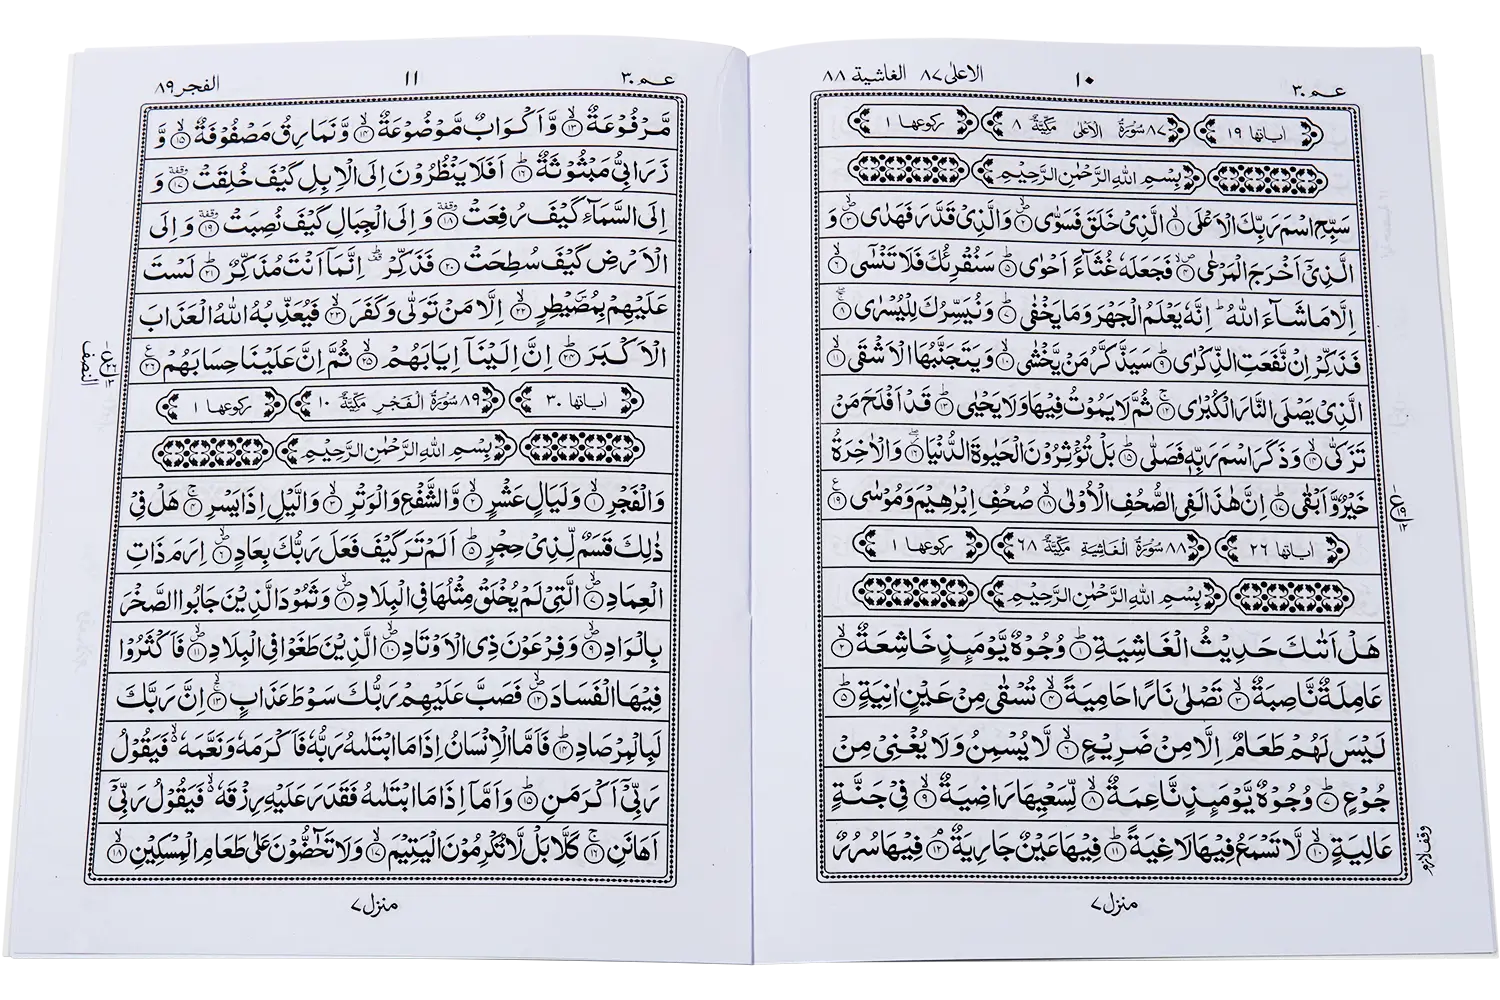 عـمّ ٣٠
١٠
الاعلى ٨٧ الغاشية ٨٨
اياتها ١٩ ٨٧ سُوْرَةُ الْاَعْلٰى مَكِّيَّةٌ ٨ ركوعها ١
بِسْمِ اللهِ الرَّحْمٰنِ الرَّحِيْمِ
سَبِّحِ اسْمَ رَبِّكَ الْاَعْلَى ۙ﴿١﴾ الَّذِيْ خَلَقَ فَسَوّٰى ۪ۙ﴿٢﴾ وَالَّذِيْ قَدَّرَ فَهَدٰى ۪ۙ﴿٣﴾ وَ
الَّذِيْٓ اَخْرَجَ الْمَرْعٰى ۪ۙ﴿٤﴾ فَجَعَلَهٗ غُثَآءً اَحْوٰى ؕ﴿٥﴾ سَنُقْرِئُكَ فَلَا تَنْسٰٓى ۙ﴿٦﴾
اِلَّا مَا شَآءَ اللهُ ؕ اِنَّهٗ يَعْلَمُ الْجَهْرَ وَمَا يَخْفٰى ؕ﴿٧﴾ وَنُيَسِّرُكَ لِلْيُسْرٰى ۚۖ﴿٨﴾
فَذَكِّرْ اِنْ نَّفَعَتِ الذِّكْرٰى ؕ﴿٩﴾ سَيَذَّكَّرُ مَنْ يَّخْشٰى ۙ﴿١٠﴾ وَيَتَجَنَّبُهَا الْاَشْقَى ۙ﴿١١﴾
الَّذِيْ يَصْلَى النَّارَ الْكُبْرٰى ۚ﴿١٢﴾ ثُمَّ لَا يَمُوْتُ فِيْهَا وَلَا يَحْيٰى ؕ﴿١٣﴾ قَدْ اَفْلَحَ مَنْ
تَزَكّٰى ۙ﴿١٤﴾ وَذَكَرَ اسْمَ رَبِّهٖ فَصَلّٰى ؕ﴿١٥﴾ بَلْ تُؤْثِرُوْنَ الْحَيٰوةَ الدُّنْيَا ۖ﴿١٦﴾ وَالْاٰخِرَةُ
خَيْرٌ وَّاَبْقٰى ؕ﴿١٧﴾ اِنَّ هٰذَا لَفِي الصُّحُفِ الْاُوْلٰى ۙ﴿١٨﴾ صُحُفِ اِبْرٰهِيْمَ وَمُوْسٰى ﴿١٩﴾
ع ١٩ ١٢
اياتها ٢٦ ٨٨ سُوْرَةُ الْغَاشِيَةِ مَكِّيَّةٌ ٦٨ ركوعها ١
بِسْمِ اللهِ الرَّحْمٰنِ الرَّحِيْمِ
هَلْ اَتٰىكَ حَدِيْثُ الْغَاشِيَةِ ؕ﴿١﴾ وُجُوْهٌ يَّوْمَئِذٍ خَاشِعَةٌ ۙ﴿٢﴾
عَامِلَةٌ نَّاصِبَةٌ ۙ﴿٣﴾ تَصْلٰى نَارًا حَامِيَةً ۙ﴿٤﴾ تُسْقٰى مِنْ عَيْنٍ اٰنِيَةٍ ؕ﴿٥﴾
لَيْسَ لَهُمْ طَعَامٌ اِلَّا مِنْ ضَرِيْعٍ ۙ﴿٦﴾ لَّا يُسْمِنُ وَلَا يُغْنِيْ مِنْ
جُوْعٍ ؕ﴿٧﴾ وُجُوْهٌ يَّوْمَئِذٍ نَّاعِمَةٌ ۙ﴿٨﴾ لِّسَعْيِهَا رَاضِيَةٌ ۙ﴿٩﴾ فِيْ جَنَّةٍ
عَالِيَةٍ ۙ﴿١٠﴾ لَّا تَسْمَعُ فِيْهَا لَاغِيَةً ؕ﴿١١﴾ فِيْهَا عَيْنٌ جَارِيَةٌ ۘ﴿١٢﴾ فِيْهَا سُرُرٌ
وقف لازم
منزل ٧
عـمّ ٣٠
١١
الفجر ٨٩
مَّرْفُوْعَةٌ ۙ﴿١٣﴾ وَّاَكْوَابٌ مَّوْضُوْعَةٌ ۙ﴿١٤﴾ وَّنَمَارِقُ مَصْفُوْفَةٌ ۙ﴿١٥﴾ وَّ
زَرَابِيُّ مَبْثُوْثَةٌ ؕ﴿١٦﴾ اَفَلَا يَنْظُرُوْنَ اِلَى الْاِبِلِ كَيْفَ خُلِقَتْ وقفة ﴿١٧﴾ وَ
اِلَى السَّمَآءِ كَيْفَ رُفِعَتْ وقفة ﴿١٨﴾ وَاِلَى الْجِبَالِ كَيْفَ نُصِبَتْ وقفة ﴿١٩﴾ وَاِلَى
الْاَرْضِ كَيْفَ سُطِحَتْ ﴿٢٠﴾ فَذَكِّرْ اِنَّمَآ اَنْتَ مُذَكِّرٌ ؕ﴿٢١﴾ لَسْتَ
عَلَيْهِمْ بِمُصَۜيْطِرٍ ۙ﴿٢٢﴾ اِلَّا مَنْ تَوَلّٰى وَكَفَرَ ۙ﴿٢٣﴾ فَيُعَذِّبُهُ اللهُ الْعَذَابَ
الْاَكْبَرَ ؕ﴿٢٤﴾ اِنَّ اِلَيْنَآ اِيَابَهُمْ ۙ﴿٢٥﴾ ثُمَّ اِنَّ عَلَيْنَا حِسَابَهُمْ ﴿٢٦﴾
ع ٢٦ ١٣ النصف
اياتها ٣٠ ٨٩ سُوْرَةُ الْفَجْرِ مَكِّيَّةٌ ١٠ ركوعها ١
بِسْمِ اللهِ الرَّحْمٰنِ الرَّحِيْمِ
وَالْفَجْرِ ۙ﴿١﴾ وَلَيَالٍ عَشْرٍ ۙ﴿٢﴾ وَّالشَّفْعِ وَالْوَتْرِ ۙ﴿٣﴾ وَالَّيْلِ اِذَا يَسْرِ ۚ﴿٤﴾ هَلْ فِيْ
ذٰلِكَ قَسَمٌ لِّذِيْ حِجْرٍ ؕ﴿٥﴾ اَلَمْ تَرَ كَيْفَ فَعَلَ رَبُّكَ بِعَادٍ ۪ۙ﴿٦﴾ اِرَمَ ذَاتِ
الْعِمَادِ ۪ۙ﴿٧﴾ الَّتِيْ لَمْ يُخْلَقْ مِثْلُهَا فِي الْبِلَادِ ۪ۙ﴿٨﴾ وَثَمُوْدَ الَّذِيْنَ جَابُوا الصَّخْرَ
بِالْوَادِ ۪ۙ﴿٩﴾ وَفِرْعَوْنَ ذِي الْاَوْتَادِ ۪ۙ﴿١٠﴾ الَّذِيْنَ طَغَوْا فِي الْبِلَادِ ۪ۙ﴿١١﴾ فَاَكْثَرُوْا
فِيْهَا الْفَسَادَ ۪ۙ﴿١٢﴾ فَصَبَّ عَلَيْهِمْ رَبُّكَ سَوْطَ عَذَابٍ ۚۙ﴿١٣﴾ اِنَّ رَبَّكَ
لَبِالْمِرْصَادِ ؕ﴿١٤﴾ فَاَمَّا الْاِنْسَانُ اِذَا مَا ابْتَلٰىهُ رَبُّهٗ فَاَكْرَمَهٗ وَنَعَّمَهٗ ۙ۬ فَيَقُوْلُ
رَبِّيْٓ اَكْرَمَنِ ؕ﴿١٥﴾ وَاَمَّآ اِذَا مَا ابْتَلٰىهُ فَقَدَرَ عَلَيْهِ رِزْقَهٗ ۙ۬ فَيَقُوْلُ رَبِّيْٓ
اَهَانَنِ ۚ﴿١٦﴾ كَلَّا بَلْ لَّا تُكْرِمُوْنَ الْيَتِيْمَ ۙ﴿١٧﴾ وَلَا تَحٰٓضُّوْنَ عَلٰى طَعَامِ الْمِسْكِيْنِ ۙ﴿١٨﴾
منزل ٧